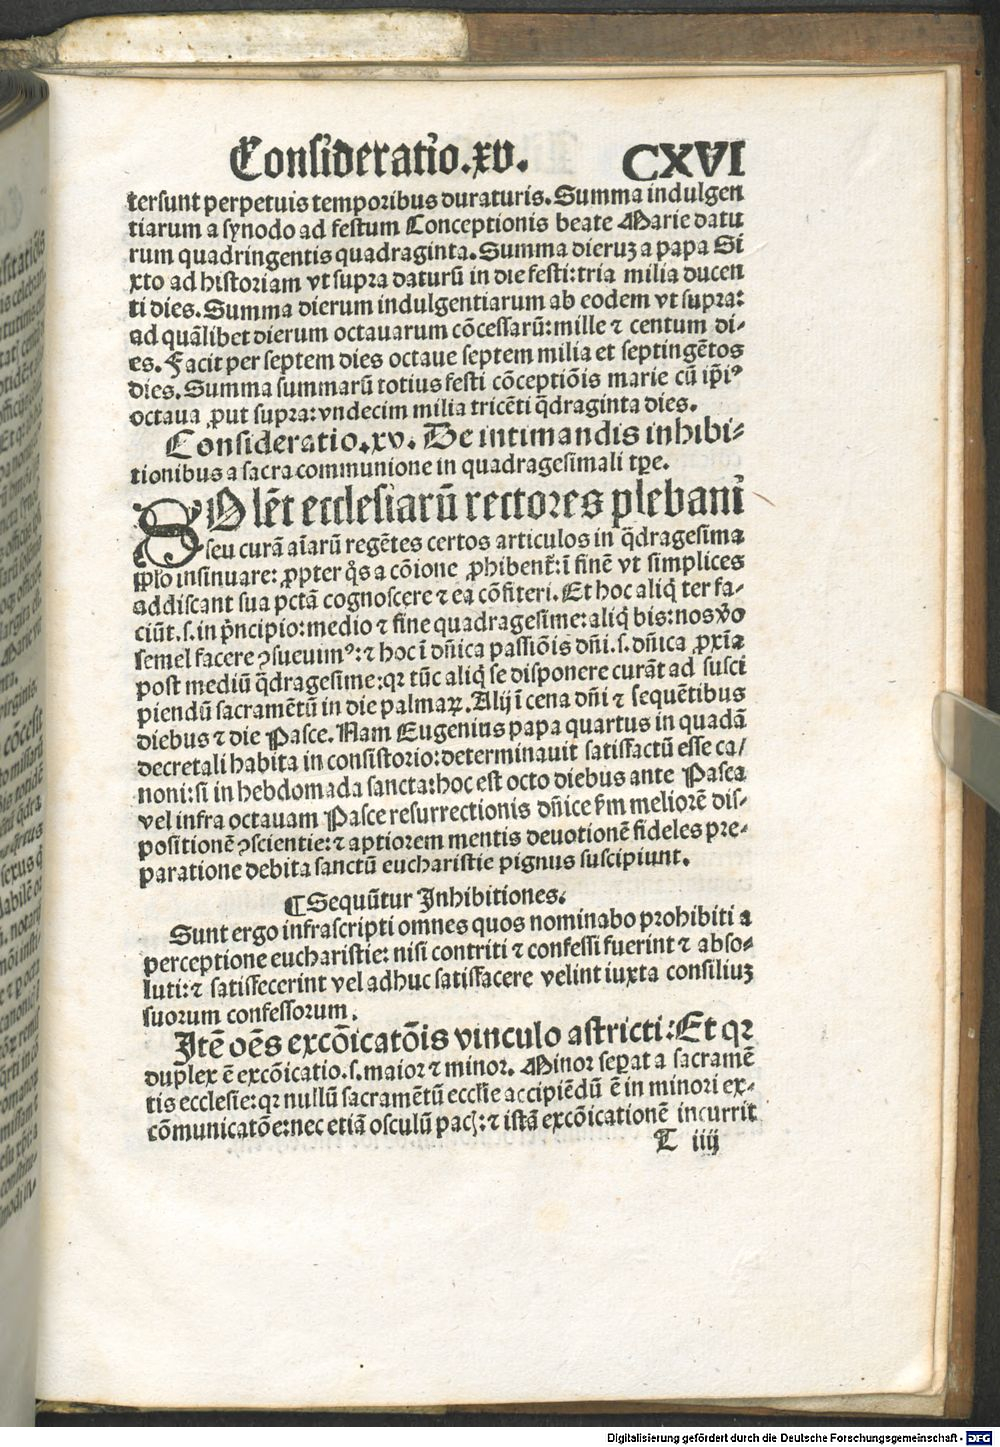 Consideratio.xv. CXVI
tersunt perpetuis temporibus duraturis. Summa indulgen
tiarum a synodo ad festum Conceptionis beate Marie datu
rum quadringentis quadraginta. Summa dieruꝫ a papa Si
xto ad historiam vt supra daturū in die festi: tria milia ducen
ti dies. Summa dierum indulgentiarum ab eodem vt supra:
ad quālibet dierum octauarum cōcessarū: mille ⁊ centum di-
es. Facit per septem dies octaue septem milia et septingētos
dies. Summa summarū totius festi cōceptiōis marie cū ip̄iꝰ
octaua ꝓut supra: vndecim milia tricēti q̄draginta dies.
Consideratio.xv. De intimandis inhibi-
tionibus a sacra communione in quadragesimali tꝑe.
SOlēt ecclesiarū rectores plebani
seu curā aīarū regētes certos articulos in q̄dragesima
pp̄lo insinuare: ꝓpter q̄s a cōione ꝓhibent̄: ī finē vt simplices
addiscant sua pctā cognoscere ⁊ ea cōfiteri. Et hoc aliq̄ ter fa-
ciūt.s. in p̄ncipio: medio ⁊ fine quadragesime: aliq̄ bis: nos v̄o
semel facere ꝯsueuimꝰ: ⁊ hoc ī dn̄ica passiōis dn̄i.s. dn̄ica ꝓxīa
post mediū q̄dragesime: qꝛ tūc aliq̄ se disponere curāt ad susci
piendū sacramētū in die palmaꝝ. Alij ī cena dn̄i ⁊ sequētibus
diebus ⁊ die Pasce. Nam Eugenius papa quartus in quadā
decretali habita in consistorio: determinauit satisfactū esse ca/
noni: si in hebdomada sancta: hoc est octo diebus ante Pasca
vel infra octauam Pasce resurrectionis dn̄ice fm̄ meliorē dis-
positionē ꝯscientie: ⁊ aptiorem mentis deuotionē fideles pre-
paratione debita sanctū eucharistie pignus suscipiunt.
¶ Sequūtur Inhibitiones.
Sunt ergo infrascripti omnes quos nominabo prohibiti a
perceptione eucharistie: nisi contriti ⁊ confessi fuerint ⁊ abso-
luti: ⁊ satisfecerint vel adhuc satisfacere velint iuxta consiliuꝫ
suorum confessorum.
Itē oēs excōicatōis vinculo astricti: Et qꝛ
duplex ē excōicatio.s. maior ⁊ minor. Minor seꝑat a sacramē
tis ecclesie: qꝛ nullū sacramētū ecclīe accipiēdū ē in minori ex-
cōmunicatōe: nec etiā osculū pacꝭ: ⁊ istā excōicationē incurrit
T iiij
Digitalisierung gefördert durch die Deutsche Forschungsgemeinschaft - DFG